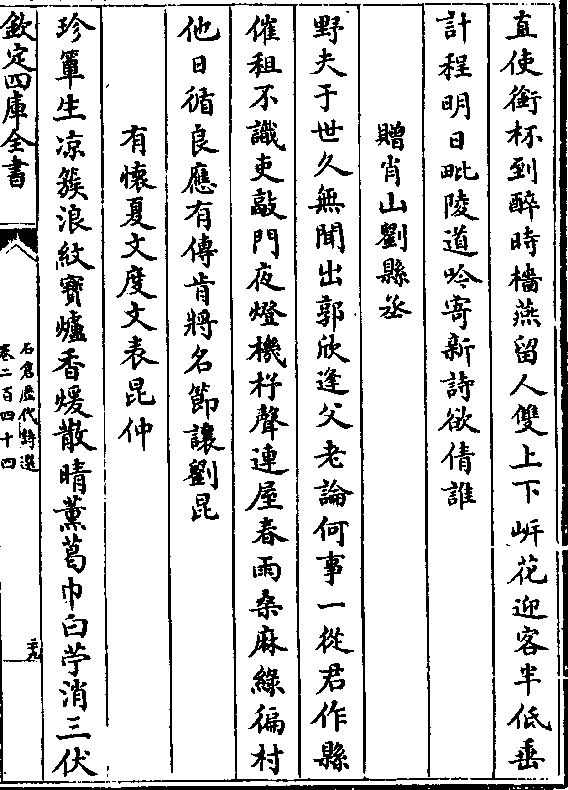 直使銜杯到醉時檣燕留人雙上下岸花迎客半低垂
計程明日毗陵道吟寄新詩欲倩誰
贈肖山劉縣丞
野夫于世久無聞出郭欣逢父老論何事一從君作縣
催租不識吏敲門夜燈機杼聲連屋春雨桑麻綠徧村
他日循良應有傳肯將名節讓劉昆
有懷夏文度文表昆仲
珍簟生凉簇浪紋寳爐香煖散晴薰葛巾白苧消三伏
欽定四庫全書
石倉歷代詩選
卷二百四十四